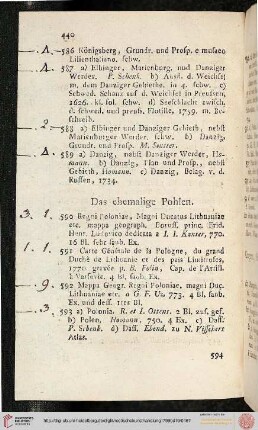 440
Δ. 586 Königsberg, Grundr. und Prosp. e museo
Lilienthaliano. schw.
Δ. 587 a) Elbinger, Marienburg. und Danziger
Werder. P. Schenk. b) Ausfl. d. Weichsel
m. dem Danziger Gebiethe. in 4. schw. c)
Schwed. Schanz auf d. Weichsel in Preussen,
1626. kl. fol. schw. d) Seeschlacht zwisch.
d. schwed. und preuß. Flotille, 1759. m. Be-
schreib.
2. 588 a) Elbinger und Danziger Gebieth, nebst
Marienburger Werder. schw. b) Danzig,
Grundr. und Prosp. M. Seutter.
Δ. 589 a) Danzig, nebst Danziger Werder, Ho-
mann. b) Danzig, Plan und Prosp., nebst
Gebieth, Homann. c) Danzig, Belag. v. d.
Russen, 1734.
Das ehemalige Pohlen.
3. 1. 590 Regni Poloniae, Magni Ducatus Lithuaniae
etc. mappa geograph. Boruss. princ. Frid.
Henr. Ludovico dedicata a I. I. Kanter, 770.
16 Bl. sehr saub. Ex.
1. 1. 591 Carte Générale de la Pologne, du grand
Duché de Lithuanie et des païs Limitrofes,
1770. gravée p. B. Folin, Cap. de l'Artill.
à Varsovie. 4 Bl. saub. Ex.
9. 592 Mappa Geogr. Regni Poloniae, magni Duc.
Lithuaniae etc. a G. F. Uz. 773. 4 Bl. saub.
Ex. und dess. 1ter Bl.
3. 593 a) Polonia. R. et I. Ottens. 2 Bl. auf. gef.
b) Polen, Homann, 750. 4 Ex. c) Dass.
P. Schenk. d) Dass. Ebend. zu N. Visschers
Atlas.
594